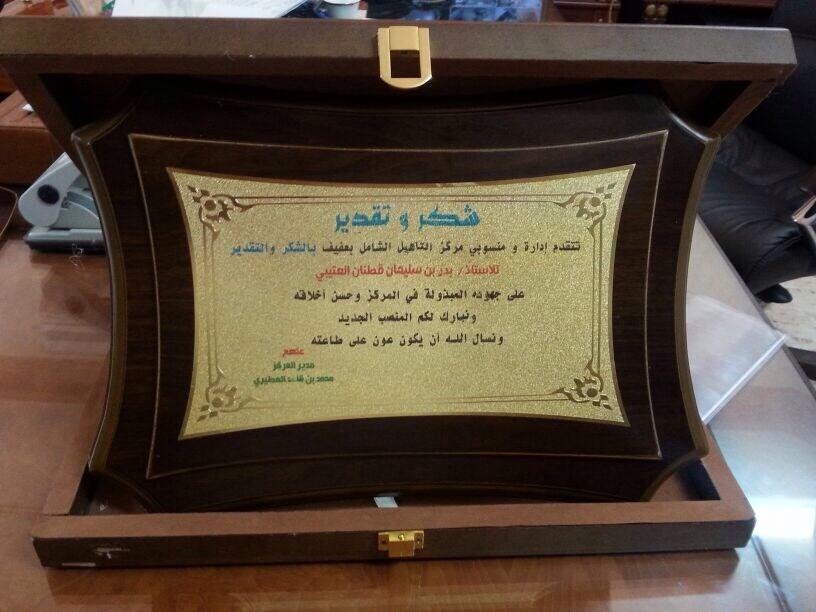 شكر و تقدير
تتقدم إدارة و منسوبي مركز التأهيل الشامل بعفيف بالشكر والتقدير
للاستاذ/ بدر بن سليمان قطنان العتيبي
على جهوده المبذولة في المركز وحسن أخلاقه
ونبارك لكم المنصب الجديد
ونسال اللـه أن يكون عون على طاعته
عنهم
مدير المركز
محمد بن المطيري